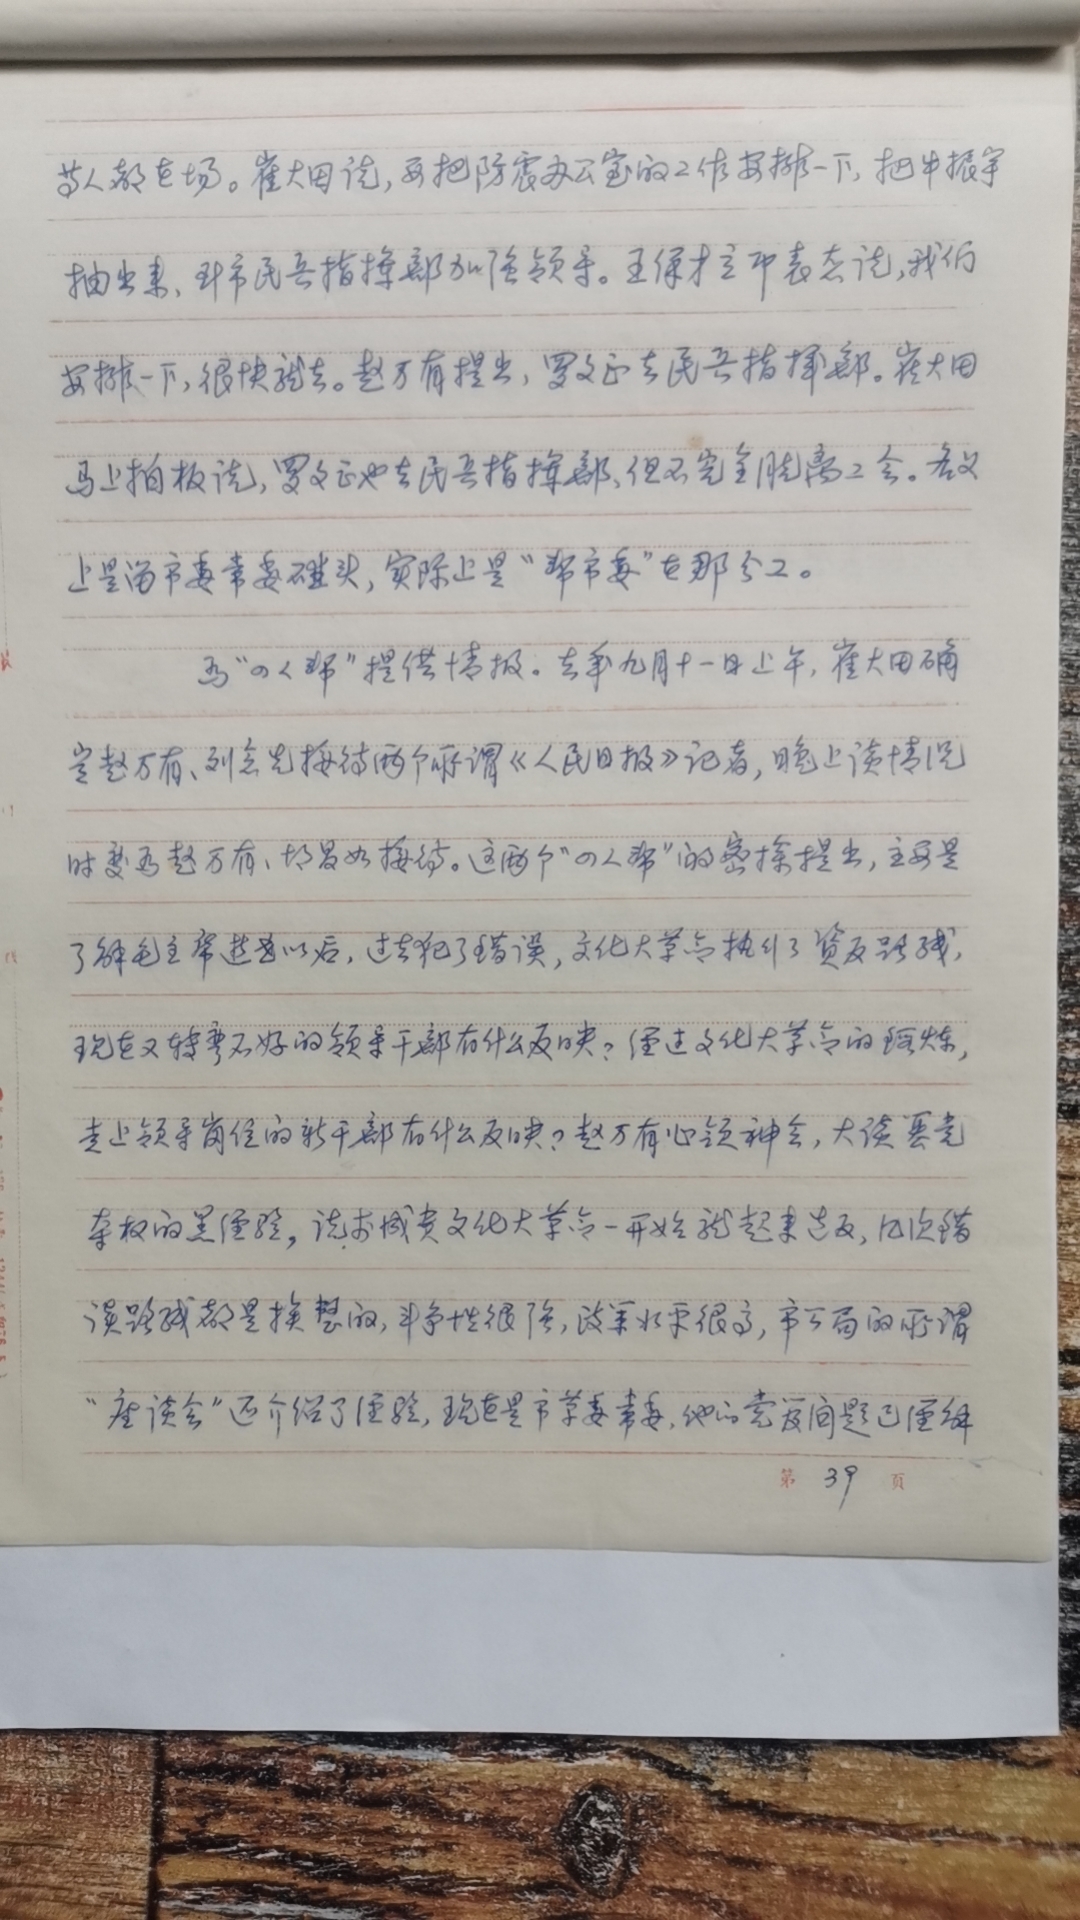 等人都在场。崔大田说，要把防震办公室的工作安排一下，把牛振宇
抽出来、到市民兵指挥部加强领导。王保才立即表态说，我们
安排一下，很快就去。赵万有提出，罗文正去民兵指挥部。崔大田
马上拍板说，罗文正也去民兵指挥部，但不完全脱离工会。名义
上是留市委常委碰头，实际上是“帮市委”在那分工。
为“四人帮”提供情报。去年九月十一日上午，崔大田确
定赵万有、刘念先接待两个所谓《人民日报》记者，晚上谈情况
时变为赵万有、胡昌如接待。这两个“四人帮”的密探提出，主要是
了解毛主席逝世以后，过去犯了错误，文化大革命执行了资反路线，
现在又转弯不好的领导干部有什么反映？经过文化大革命的锻炼，
走上领导岗位的新干部有什么反映？赵万有心领神会，大谈要党
夺权的黑经验，说 成贵文化大革命一开始就起来造反，几次错
误路线都是挨整的，斗争性很强，政策水平很高，市 局的所谓
“座谈会”还介绍了经验，现在是市革委常委，他的党 问题已经解
第 39 頁